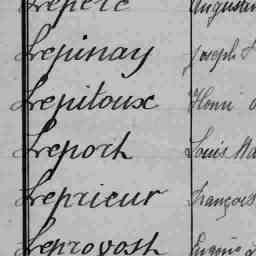 Lepère Augustin
Lepinay Joseph
Lepitoux Henri
Leport Louis Ma
Leprieur François
Leprovost Eugène